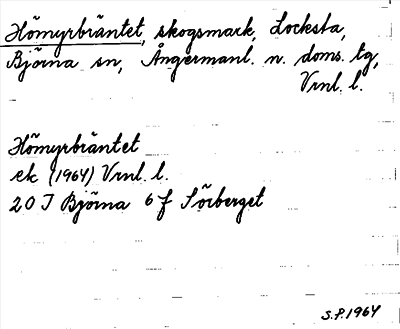 Hömyrbräntet, skogsmark, Locksta,
Björna sn, Ångermanl. n. doms. tg,
Vrnl. l.
Hömyrbräntet
ek (1964) Vrnl. l.
20 J Björna 6 f Sörberget
S.P. 1964